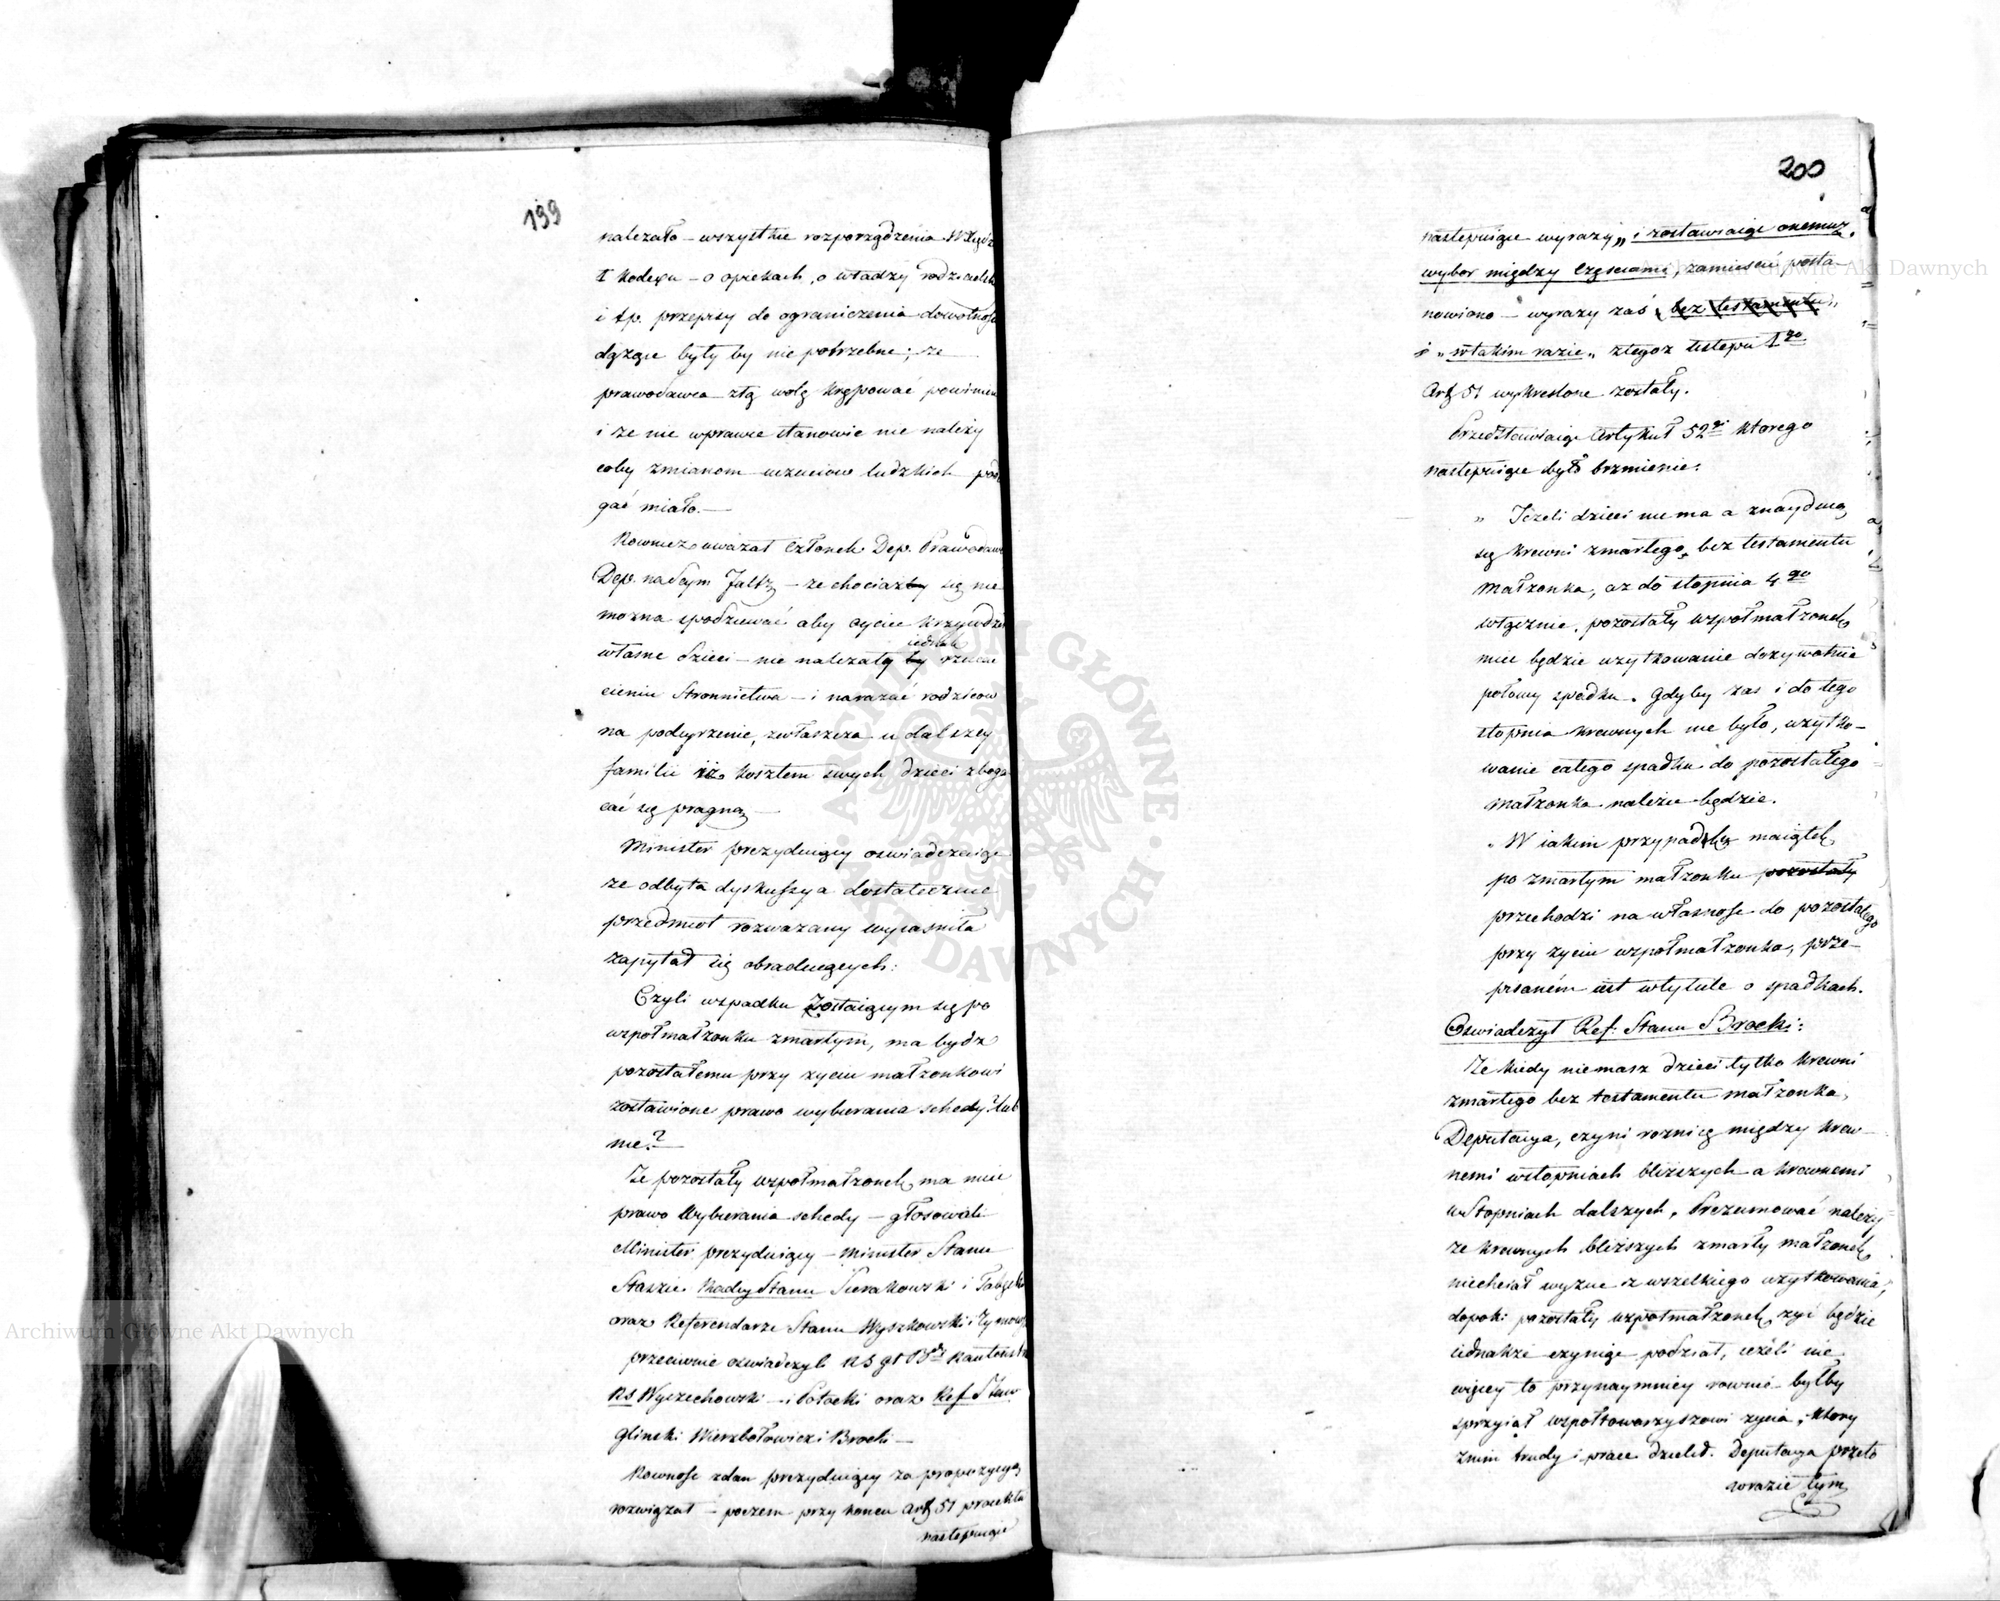 199
należało – wszystkie rozporządzenia w Xiędz
I Kodexu – o opiekach, o władzy rodzicielsk
i tp. przepisy do ograniczenia dowolnośc
dążące były by nie potrzebne; że
prawodawca złą wolę krępować powinien
i że nie w prawie stanowić nie należy
coby zmianom uczuciow ludzkich podl
gać miało. –
Rownież uważał Członek Dep. Prawodaw
Dep. na Seym Jaltz – że chociażby się nie
można spodziewać aby oyciec krzywdził
iednak
własne dzieci – nie należały by rzucać
cieniu stronnictwa – i narażać rodzicow
na podeyrzenie, zwłaszcza u dalszey
familii iż kosztem swych dzieci zboga
cać się pragną –
Minister prezyduiący oświadczaiąc
że odbyta dyskussya dostatecznie
przedmiot rozważany wyiaśniła
zapytał się obraduiących:
Czyli w spadku zostaiącym się po
wspołmałżonku zmarłym, ma bydź
pozostałemu przy życiu małżonkowi
zostawione prawo wybierania schedy? lub
nie? –
Że pozostały wspołmałżonek ma mieć
prawo wybierania schedy – głosowali
Minister prezyduiący – Minister Stanu
Staszic Radcy Stanu Sierakowski i Tabęcki
oraz Referendarze Stanu Wyszkowski i Tymow
przeciwnie oświadczyli RS gł Bon Kautoustr
RS Wyczechowski – i Potocki oraz Ref Stanu
Gliński Wierzbołowicz i Brocki –
Rowność zdań prezyduiący za propozycyą
rozwiązał – poczem przy końcu Art 51 proiektu
następuiące
200
następuiące wyrazy „ i zostawiaiąc onemuż
wybor między częściami, zamieścić posta-
nowiono – wyrazy zaś „ bez testamentu „
i „ w takim razie „ z tegoż ustępu 1go
Art 51 wykreślone zostały.
Przedstawiaiąc Artykuł 52gi ktorego
następuiące było brzmienie:
„ Jeżeli dzieci nie ma a znayduią
się krewni zmarłego bez testamentu
małżonka, aż do stopnia 4go
włącznie, pozostały wspołmałżonek
mieć będzie użytkowanie dożywotnie
połowy spadku. Gdyby zaś i do tego
stopnia krewnych nie było, użytko-
wanie całego spadku do pozostałego
małżonka należeć będzie.
„ W iakim przypadku maiątek
po zmarłym małżonku pozostały
przechodzi na własność do pozostałego
przy życiu wspołmałżonka, prze-
pisaném iest w tytule o spadkach.
Oświadczył Ref: Stanu Brocki:
Że kiedy niemasz dzieci tylko krewni
zmarłego bez testamentu małżonka,
Deputacya, czyni rożnicę między krew-
nemi w stopniach bliższych a krewnemi
w stopniach dalszych. Prezumować należy
że krewnych bliższych zmarły małżonek
niechciał wyzuć z wszelkiego użytkowania,
dopoki pozostały wspołmałżonek żyć będzie
iednakże czyniąc podział, ieżeli nie
więcey to przynaymniey rownie byłby
sprzyiał wspołtowarzyszowi życia, ktory
z nim trudy i prace dzielił. Deputacya przeto
w razie tym